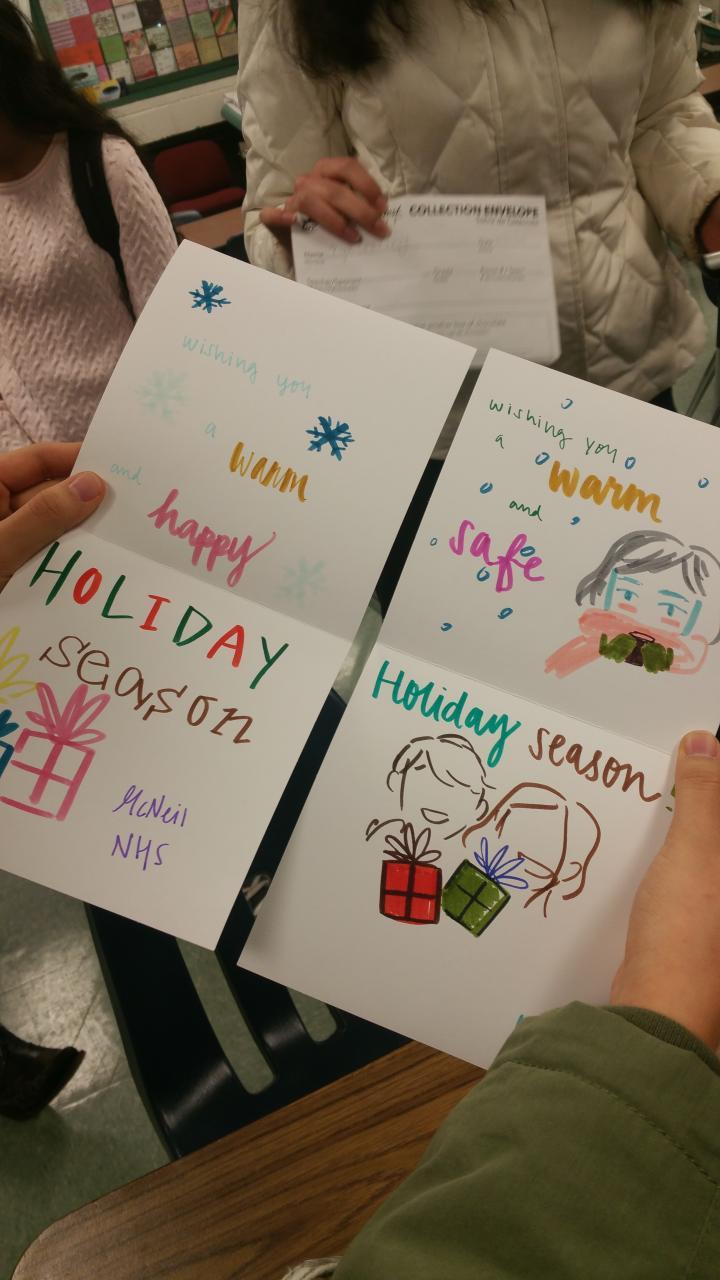 COLLECTION ENVELOPE
wishing you
a warm
and
happy
HOLIDAY
season
McNeil
NHS
wishing you
a warm
and
safe
Holiday season